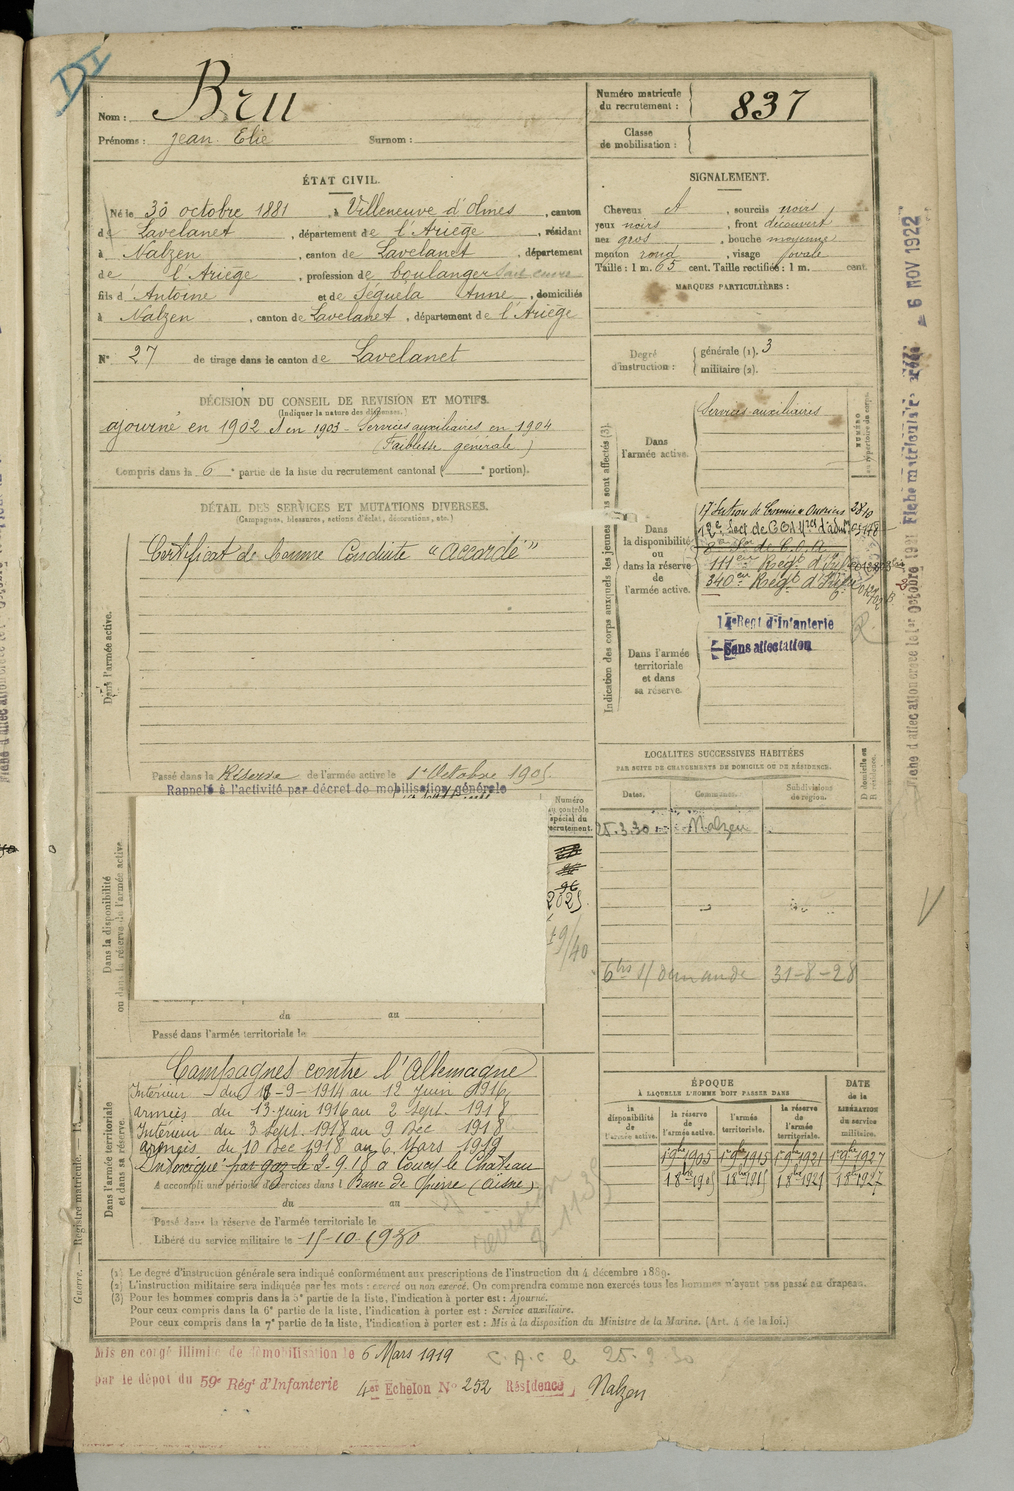 DI
Nom : Bru
Prénoms : Jean Elie Surnom :
Numéro matricule du recrutement : 837
Classe de mobilisation :
ÉTAT CIVIL.
Né le 30 octobre 1881, à Villeneuve d'Olmes, canton
de Lavelanet, département de l'Ariège, résidant
à Nalzen, canton de Lavelanet, département
de l'Ariège, profession de boulanger
fils d'Antoine et de Séguéla Anne, domiciliés
à Nalzen, canton de Lavelanet, département de l'Ariège
N° 27 de tirage dans le canton de Lavelanet
SIGNALEMENT.
Cheveux sourcils noirs
yeux noirs, front découvert
nez gros, bouche moyenne
menton rond, visage ovale
Taille : 1 m. 65 cent. Taille rectifiée : 1 m. cent.
MARQUES PARTICULIÈRES :
Degré d'instruction : générale (1). 3
militaire (2).
DÉCISION DU CONSEIL DE REVISION ET MOTIFS.
(Indiquer la nature des dispenses.)
ajourné en 1902 et en 1903 - Services auxiliaires en 1904
(Faiblesse générale)
Compris dans la 6e partie de la liste du recrutement cantonal ( e portion).
DÉTAIL DES SERVICES ET MUTATIONS DIVERSES.
(Campagnes, blessures, actions d'éclat, décorations, etc.)
Dans l'armée active.
Certificat de bonne Conduite "Accordé"
Passé dans la Réserve de l'armée active le 1er Octobre 1905.
Rappelé à l'activité par décret de mobilisation générale
Indication des corps auxquels les jeunes gens sont affectés (3).
NUMÉRO au répertoire du corps.
Dans l'armée active.
Services auxiliaires
Dans la disponibilité ou dans la réserve de l'armée active.
17e Section de Commis et Ouvriers
111eme Reg. d'Inf.
340eme Reg. d'Inf.
14e Regt d'Infanterie
Sans affectation
Dans l'armée territoriale et dans sa réserve.
LOCALITÉS SUCCESSIVES HABITÉES
PAR SUITE DE CHANGEMENTS DE DOMICILE OU DE RÉSIDENCE.
Dates. Communes. Subdivisions de région. D domicile ou R résidence.
25.3.30 Nalzen
31-8-28
Dans la disponibilité ou dans la réserve de l'armée active.
Numéro au contrôle spécial du recrutement.
96
2025
du au
Passé dans l'armée territoriale le
Dans l'armée territoriale et dans sa réserve.
Campagnes contre l'Allemagne
Intérieur du 18-9-1914 au 12 Juin 1916
armées du 13 juin 1916 au 2 Sept. 1918
Intérieur du 3 Sept. 1918 au 9 Dec 1918
armées du 10 Dec 1918 au 6 Mars 1919
Intoxiqué par gaz le 2-9.18 à Coucy le Château
A accompli une période d'exercices dans l
(Aisne)
du au
Passé dans la réserve de l'armée territoriale le
Libéré du service militaire le 15-10-1930
ÉPOQUE
À LAQUELLE L'HOMME DOIT PASSER DANS
la disponibilité de l'armée active.
la réserve de l'armée active.
l'armée territoriale.
la réserve de l'armée territoriale.
DATE de la LIBÉRATION du service militaire.
1 9bre 1905 1 9bre 1915 1 9bre 1921 1 9bre 1927
(1) Le degré d'instruction générale sera indiqué conformément aux prescriptions de l'instruction du 4 décembre 1889.
(2) L'instruction militaire sera indiquée par les mots : exercé ou non exercé. On comprendra comme non exercés tous les hommes n'ayant pas passé au drapeau.
(3) Pour les hommes compris dans la 5e partie de la liste, l'indication à porter est : Ajourné.
Pour ceux compris dans la 6e partie de la liste, l'indication à porter est : Service auxiliaire.
Pour ceux compris dans la 7e partie de la liste, l'indication à porter est : Mis à la disposition du Ministre de la Marine. (Art. 4 de la loi.)
Mis en congé illimité de démobilisation le 6 Mars 1919
par le dépôt du 59e Régt d'Infanterie 4er Echelon N° 252 Résidence, Nalzen
C.A.C le 25.3 30
Guerre. — Registre matricule.
Fiche matriculaire 6 NOV 1922